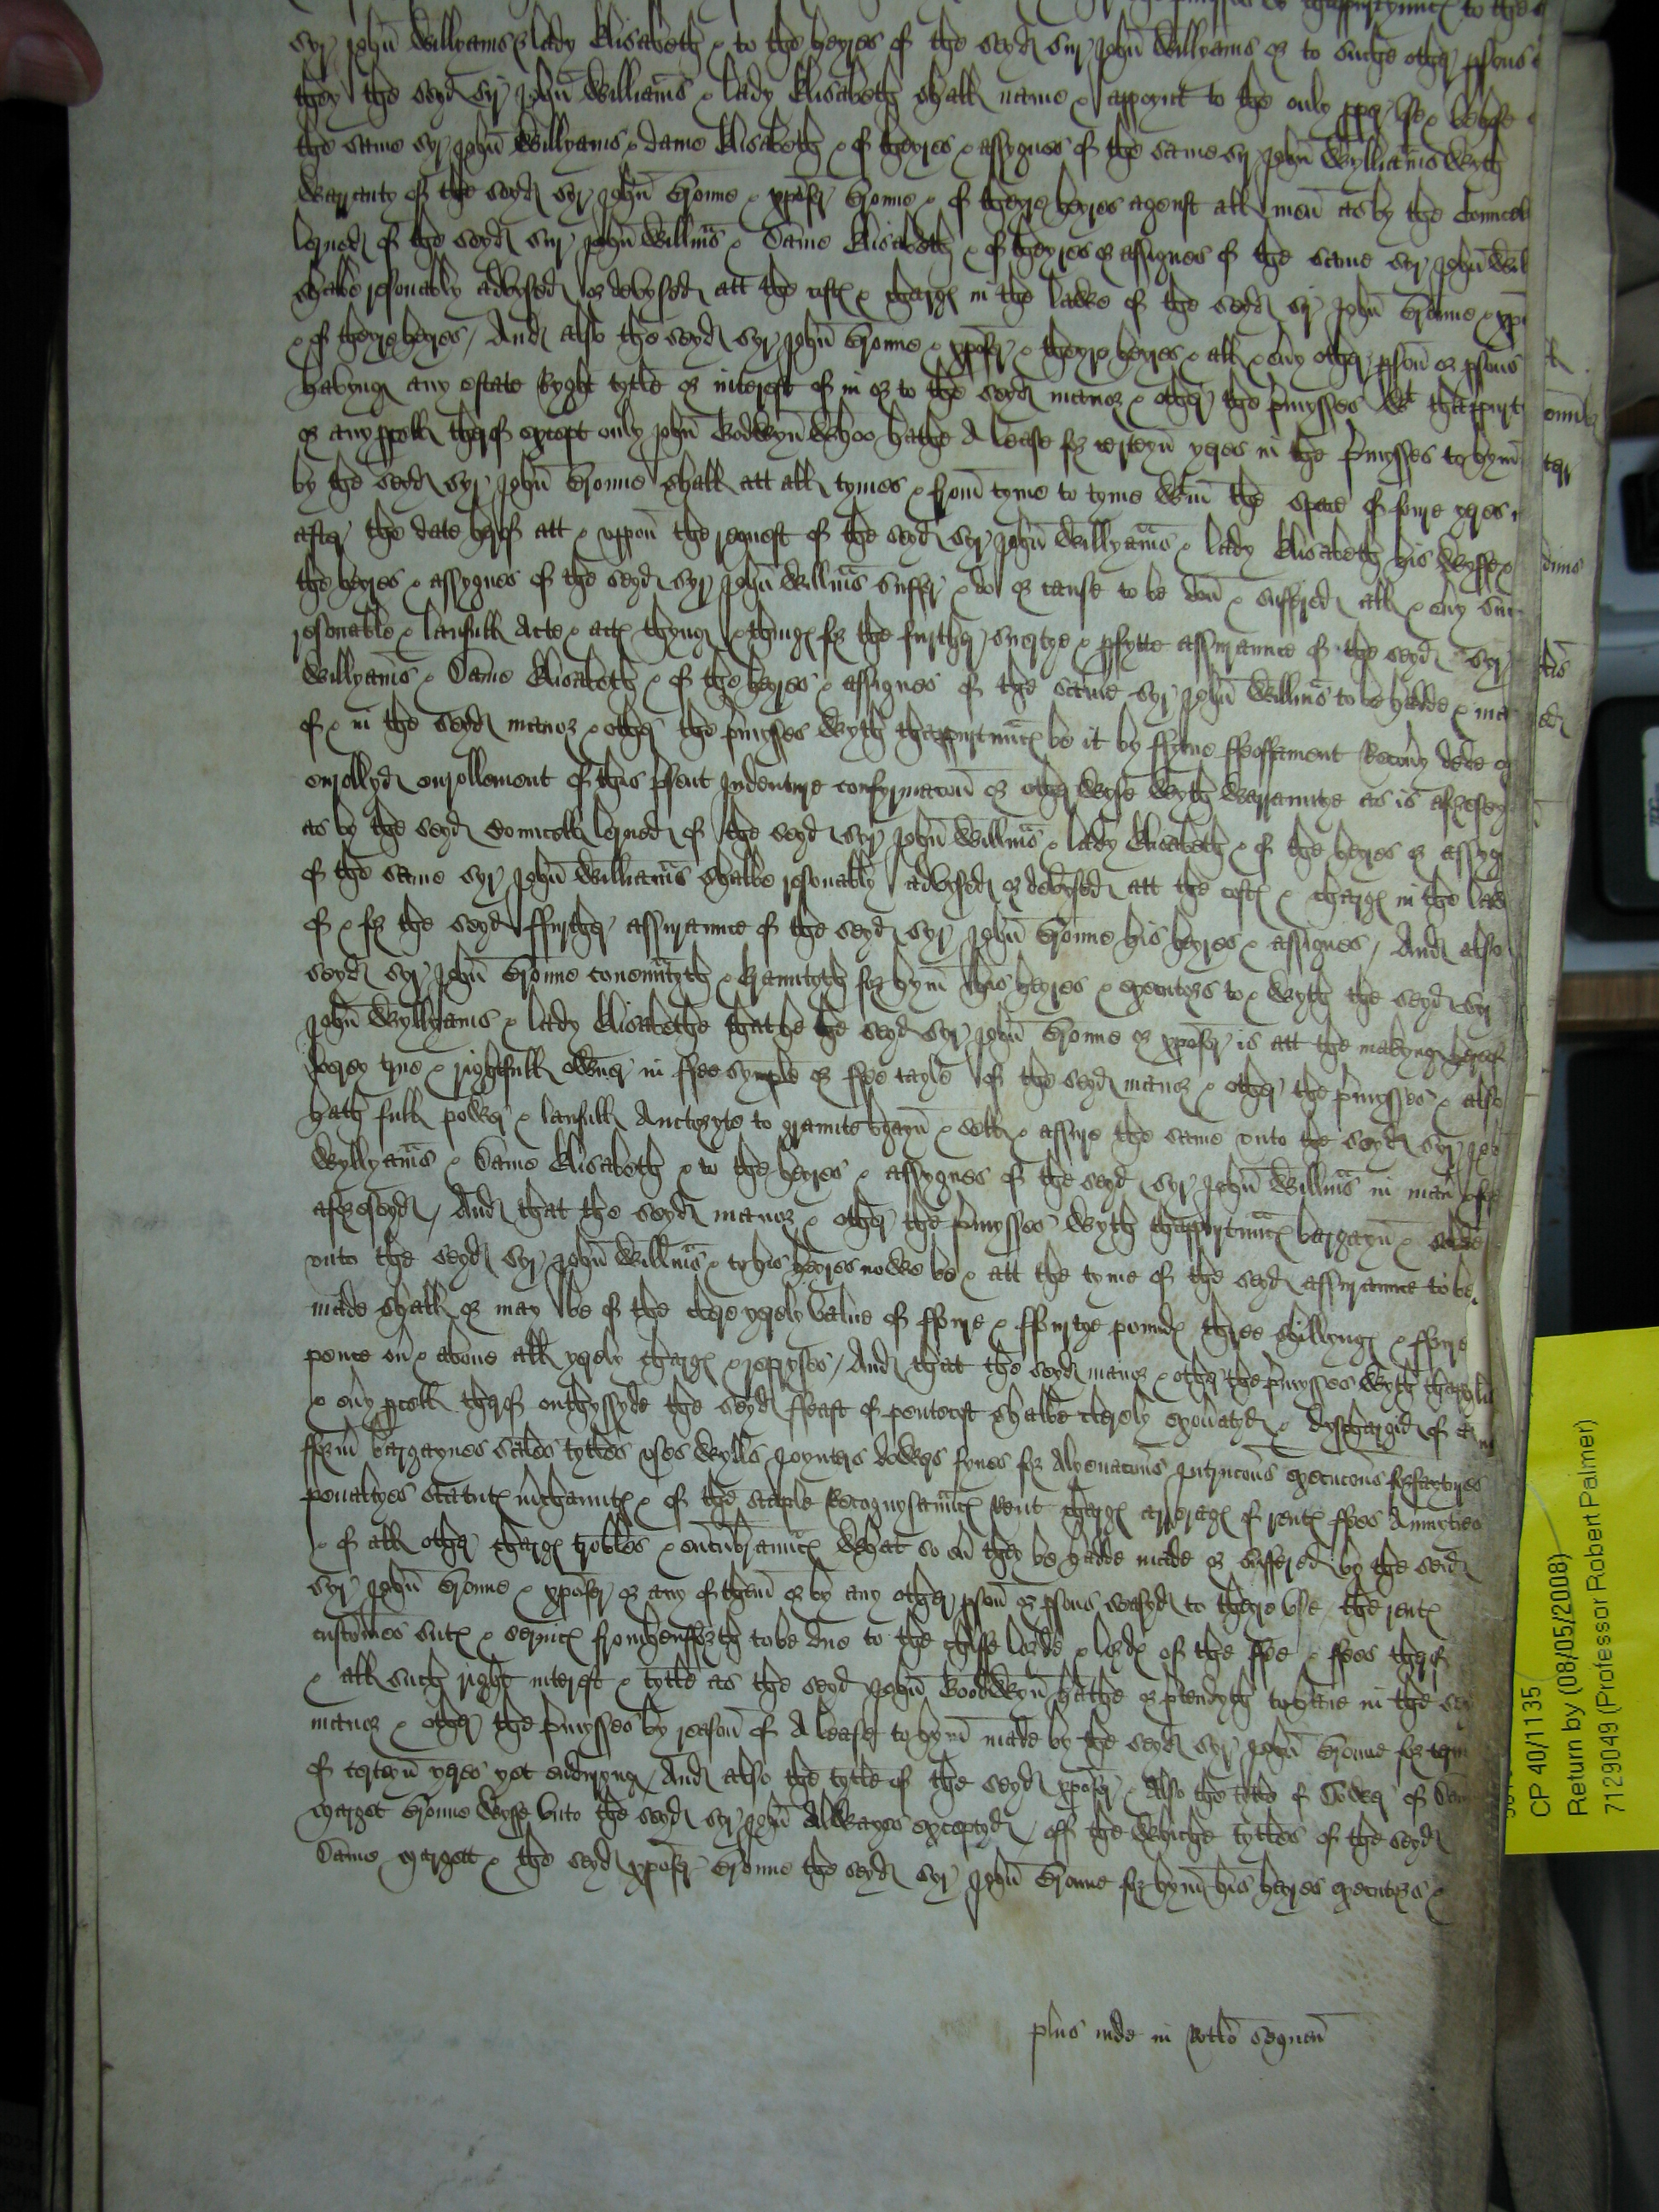 syr John Willyams & lady Elisabeth & to the heyres of the seyd syr John Willyams or to suche other psons
they the seyd syr John Williams & lady Elisabeth shall name & appoynt to the only pper use & behofe
the same syr John Willyams & dame Elisabeth & of theyres & assygnes of the same syr John Wyllams wyth
warranty of the seyd syr John & xpofer & of theyre heyres agenst all men as by the councell
lerned of the seyd syr John Willms & Dame Elisabeth & of theyres or assignes of the same syr John Wil
shalbe resonably advysed or devysed att the costs & charges in the lawe of the seyd sir John & xpo
& of theyre heyres / And also the seyd syr John & xpofer & theyre heyres & all & evy other pson or psons
havyng any estate ryght tytle or interest of in or to the seyd manor & other the pmysses wt thappurt
or any pcell therof except only John Bodwyn whoo hathe A lease for certeyn yeres in the pmysses to hym
by the seyd syr John shall att all tymes & from tyme to tyme wtin the space of foure yeres
after the date herof att & uppon the request of the seyd syr John Willyams & lady Elisabeth his wyffe &
the heyres & assygnes of the seyd syr John Willms suffer & do or cause to be don & suffered all & evy suc
resonable & laufull Acte & acts thyng & thinges for the further suertye & pfytte assurannce of the seyd syr
Willyams & Dame Elisabeth & of the heyres & assignes of the same syr John Willms to be hadde & ma
of & in the seyd manor & other the pmysses wyth thappurtnncs be it by ffyne ffeoffament Recovy dede
enrollyd enrollement of this psent Indenture confyrmacon or otherwyse wyth warrantye as is aforeseyd
as by the seyd Councell lerned of the seyd syr John Willms & lady Elisabeth & of the heyres or assyg
of the same syr John Williams shalbe resonably advysed or devysed att the costs & charges in the law
of & for the seyd ffurther assurannce of the seyd syr John his heyres & assignes / And also
seyd syr John covennytyth & grauntyth for hym his heyres & executors to & wyth the seyd syr
John Wyllyams & lady Elisabethe that he the seyd syr John or xpofer is att the makyng herof
verey true & rightfull owner in ffee symple or ffee tayle of the seyd manor & other the pmysses & also
hath full power & laufull Auctoryte to graunte bargayn & sell & assure the same unto the seyd syr Joh
Wyllyams & Dame Elisabeth & to the heyres & assygnes of the seyd syr John Willms in man
aforeseyd / And that the seyd manor & other the pmysses wyth thappurtnncs bargayn & solde
unto the seyd syr John Willms & to his heyres nowe be & att the tyme of the seyd assurannce to be
made shall or may be of the clere yerely value of ffoure & ffourtye pounds three shillyngs & ffoure
pence ov & above all yerely charges & repryses / And that the seyd manor & other the pmysses wyth
& evy pcell therof onthyssyde the seyd ffeast of pentecost shalbe clerely exonatyd & dyschargid of
fform bargaynes sales tytles uses wylls joynters dowers fynes for Alyenacons Intrucons execucons forfactures
penaltyes statuts mchaunts & of the staple Recognysanncs rent charges arrerages of rents ffees Annuties
& of all other charges trobles & encubrannces what so ev they be hadde made or suffered by the seid
syr John & xpofer or any of them or by any other pson or psons to there use / the rents
customes suts & services fromhensforth to be due to the chiffe lorde & lords of the ffee & ffees therof
& all such right interest & tytle as the seyd John Boodwyn hathe or ptendyth to have in the sey
manor & other the pmysses by reason of A lease to hym made by the seyd syr John for term
of certeyn yeres yet enduryng / And also the tytle of the seyd xpofer & Also the title of Dower of Dam
Marget wyffe unto the seyd syr John Alwayes exceptyd / off the whiche tytles of the seyd
Dame Margett & the seyd xpofer the seyd syr John for hym his heyres executors &
plus inde in Rotlo sequen
CP 40/1135
Return by (08/05/2008)
7129049 (Professor Robert Palmer)